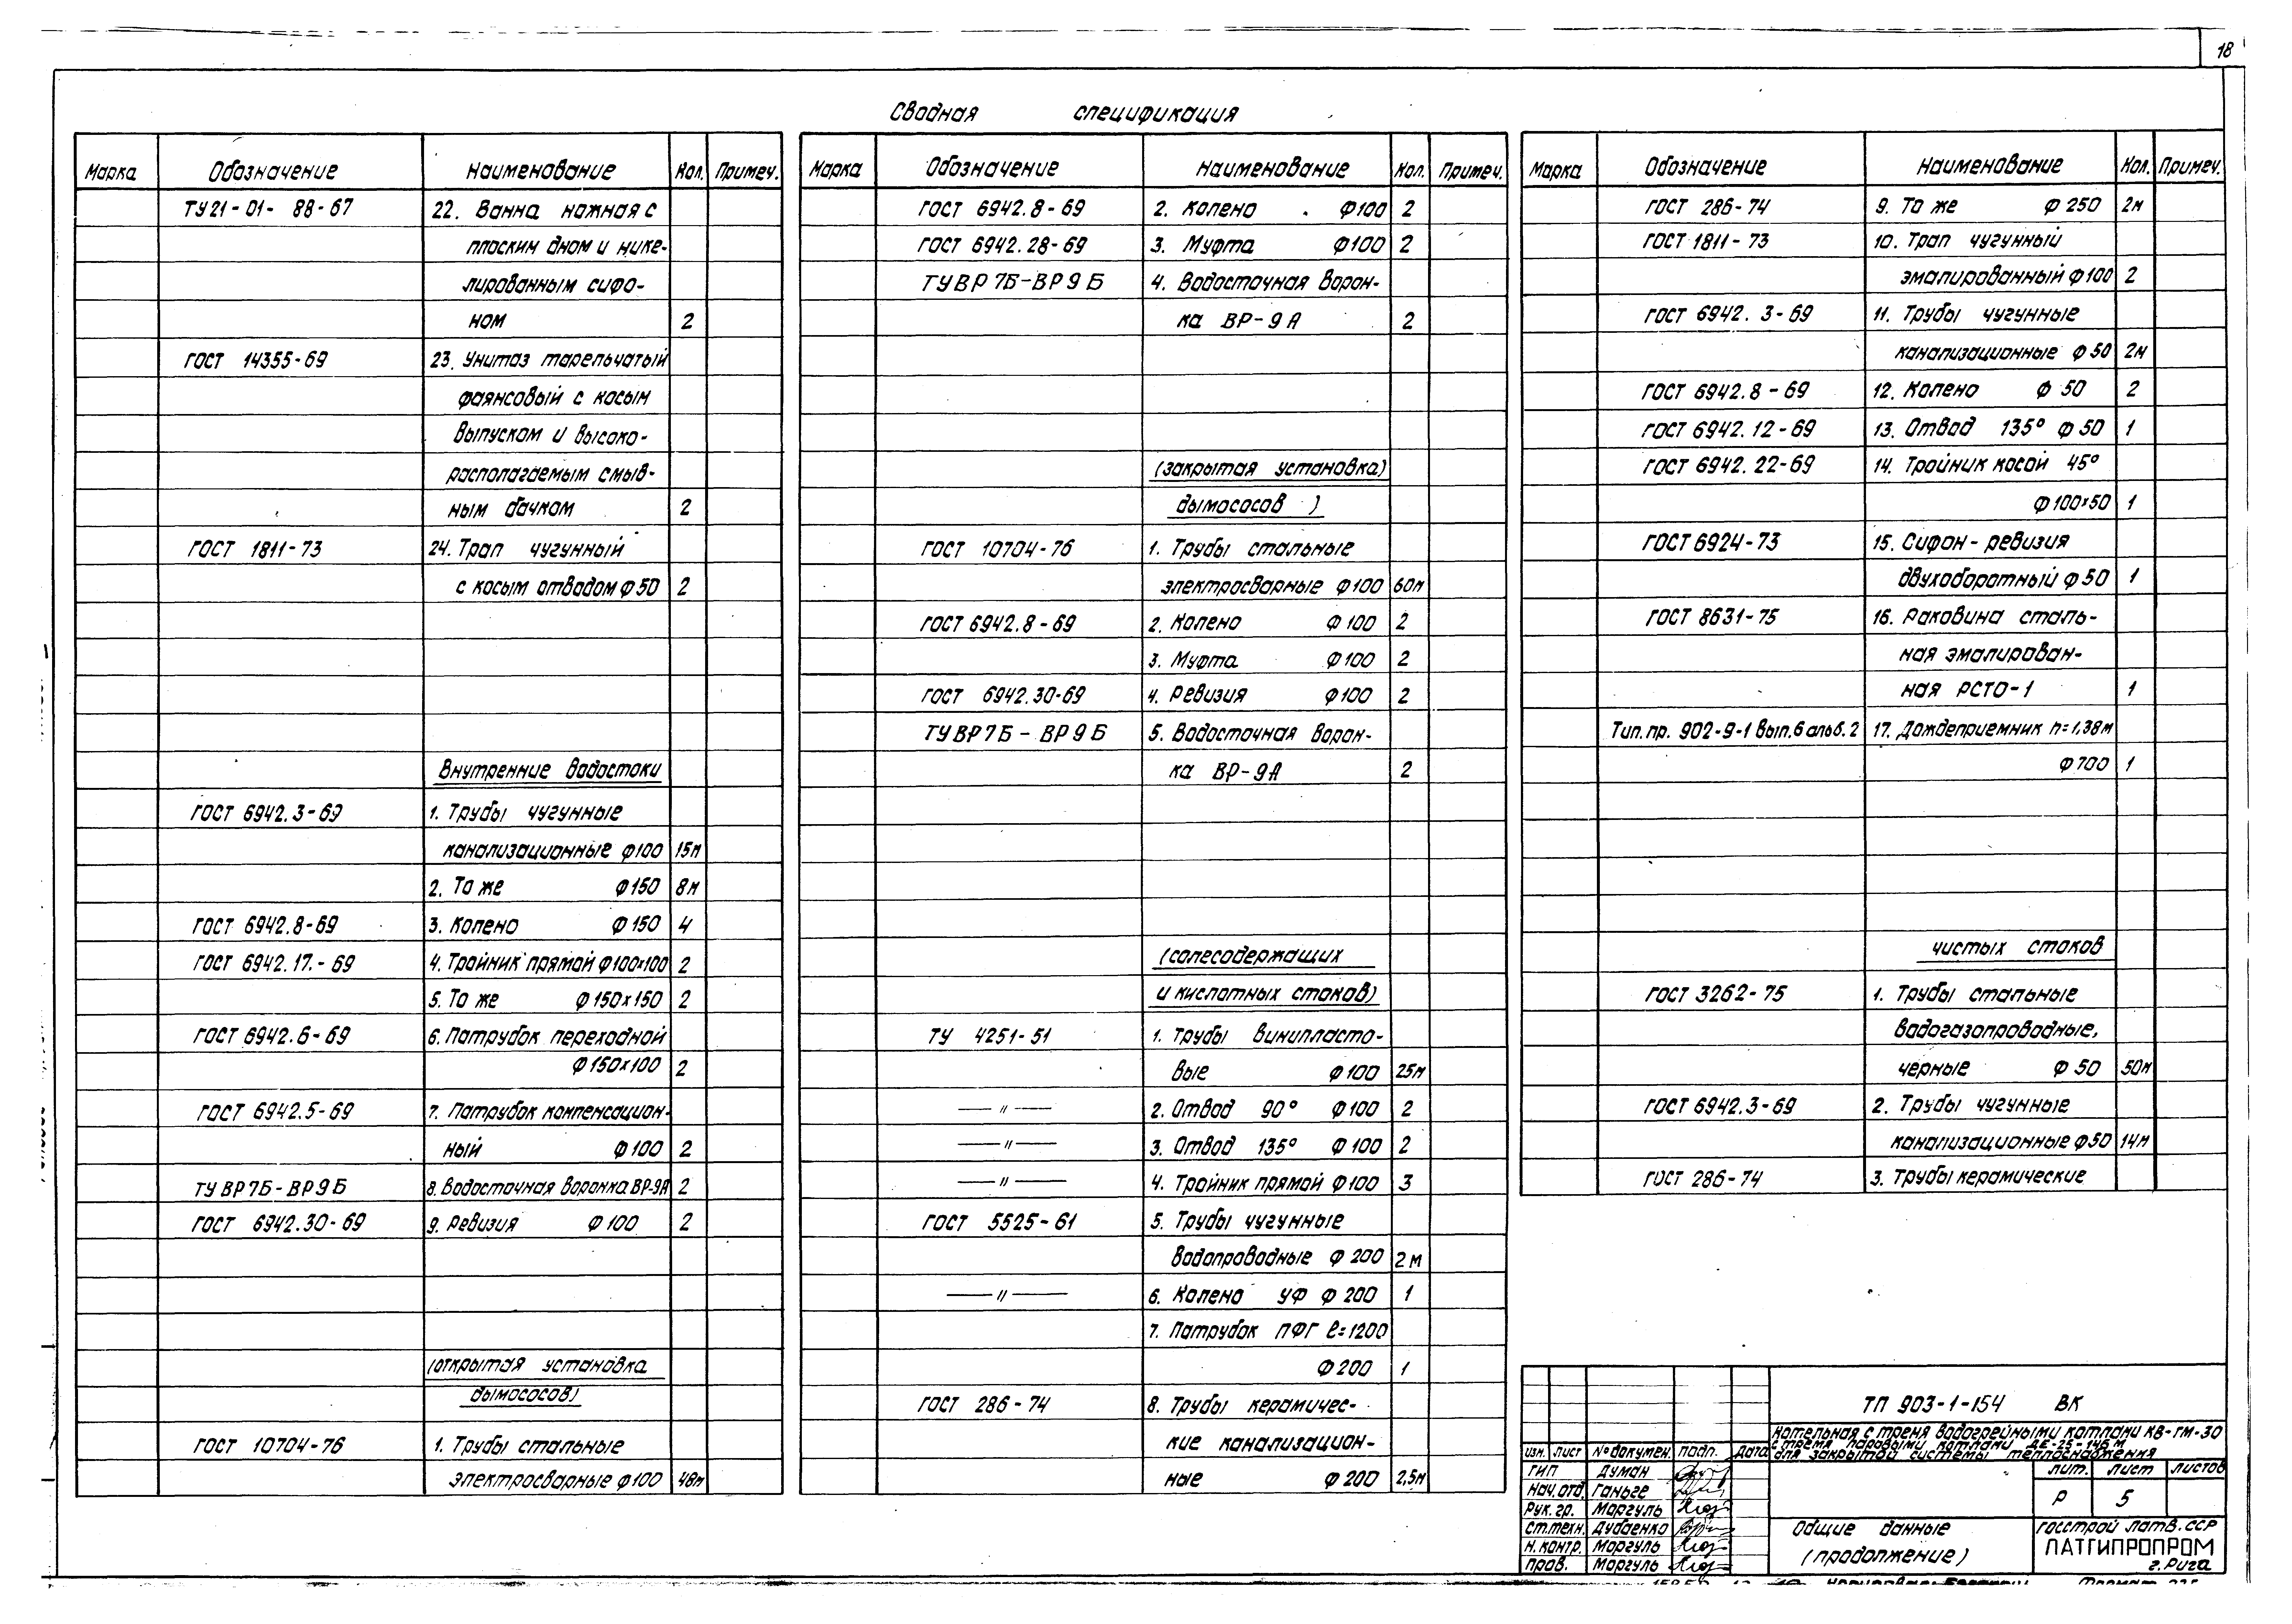 18
Сводная спецификация
Марка Обозначение Наименование Кол. Примеч.
ТУ21-01-88-67 22. Ванна ножная с
плоским дном и нике-
лированным сифо-
ном 2
ГОСТ 14355-69 23. Унитаз тарельчатый
фаянсовый с косым
выпуском и высоко-
располагаемым смыв-
ным бачком 2
ГОСТ 1811-73 24. Трап чугунный
с косым отводом ф50 2
Внутренние водостоки
ГОСТ 6942.3-69 1. Трубы чугунные
канализационные ф100 15м
2. То же ф150 8м
ГОСТ 6942.8-69 3. Колено ф150 4
ГОСТ 6942.17.-69 4. Тройник прямой ф100х100 2
5. То же ф150х150 2
ГОСТ 6942.6-69 6. Патрубок переходной
ф150х100 2
ГОСТ 6942.5-69 7. Патрубок компенсацион-
ный ф100 2
ТУ ВР7Б-ВР9Б 8. Водосточная воронка ВР-9А 2
ГОСТ 6942.30-69 9. Ревизия ф100 2
(открытая установка
дымососов)
ГОСТ 10704-76 1. Трубы стальные
электросварные ф100 48м
Марка Обозначение Наименование Кол. Примеч.
ГОСТ 6942.8-69 2. Колено ф100 2
ГОСТ 6942.28-69 3. Муфта ф100 2
ТУ ВР 7Б-ВР9Б 4. Водосточная ворон-
ка ВР-9А 2
(закрытая установка)
дымососов )
ГОСТ 10704-76 1. Трубы стальные
электросварные ф100 60м
ГОСТ 6942.8-69 2. Колено ф100 2
3. Муфта ф100 2
ГОСТ 6942.30-69 4. Ревизия ф100 2
ТУ ВР7Б-ВР9Б 5. Водосточная ворон-
ка ВР-9А 2
(солесодержащих
и кислотных стоков)
ТУ 4251-51 1. Трубы винипласто-
вые ф100 25м
—〃— 2. Отвод 90° ф100 2
—〃— 3. Отвод 135° ф100 2
—〃— 4. Тройник прямой ф100 3
ГОСТ 5525-61 5. Трубы чугунные
водопроводные ф200 2м
—〃— 6. Колено УФ ф200 1
7. Патрубок ПФГ ℓ=1200
ф200 1
ГОСТ 286-74 8. Трубы керамичес-
кие канализацион-
ные ф200 2,5м
Марка Обозначение Наименование Кол. Примеч.
ГОСТ 286-74 9. То же ф250 2м
ГОСТ 1811-73 10. Трап чугунный
эмалированный ф100 2
ГОСТ 6942.3-69 11. Трубы чугунные
канализационные ф50 2м
ГОСТ 6942.8-69 12. Колено ф50 2
ГОСТ 6942.12-69 13. Отвод 135° ф50 1
ГОСТ 6942.22-69 14. Тройник косой 45°
ф100х50 1
ГОСТ 6924-73 15. Сифон-ревизия
двухоборотный ф50 1
ГОСТ 8631-75 16. Раковина сталь-
ная эмалирован-
ная РСТО-1 1
Тип.пр. 902-9-1 вып.6 альб.2 17. Дождеприемник h=1,38м
ф700 1
чистых стоков
ГОСТ 3262-75 1. Трубы стальные
водогазопроводные,
черные ф50 50м
ГОСТ 6942.3-69 2. Трубы чугунные
канализационные ф50 14м
ГОСТ 286-74 3. Трубы керамические
ТП 903-1-154 ВК
Котельная с тремя водогрейными котлами КВ-ГМ-30
с тремя паровыми котлами ДЕ-25-14ГМ
для закрытой системы теплоснабжения
Изм. Лист № докумен. Подп. Дата
ГИП Думан
Нач.отд. Ганьге
Рук.гр. Моргуль
Ст.техн. Дубаенко
Н.контр. Моргуль
Пров. Моргуль
Лит. Лист Листов
Р 5
Общие данные
(продолжение)
Госстрой Латв.ССР
ЛАТГИПРОПРОМ
г.Рига